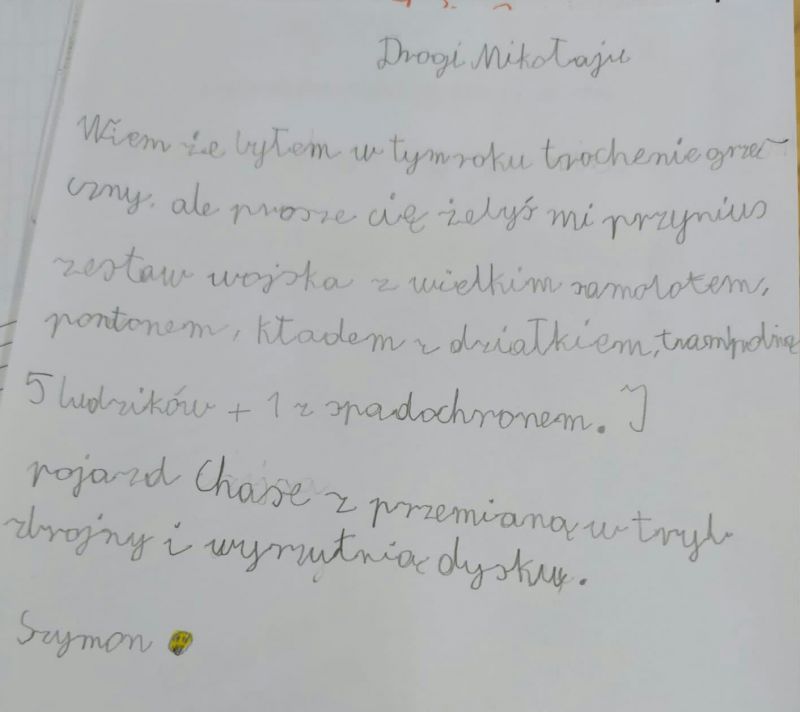 Drogi Mikołaju
Wiem że byłem w tym roku troche nie grze-
czny. ale prosze cię żebyś mi przynius
zestaw wojska z wielkim samolotem,
pontonem, kładem z działkiem, trampoliną
5 ludzików + 1 z spadochronem. I
pojazd Chase z przemianą w tryb
zbrojny i wyrzutnią dysku.
Szymon